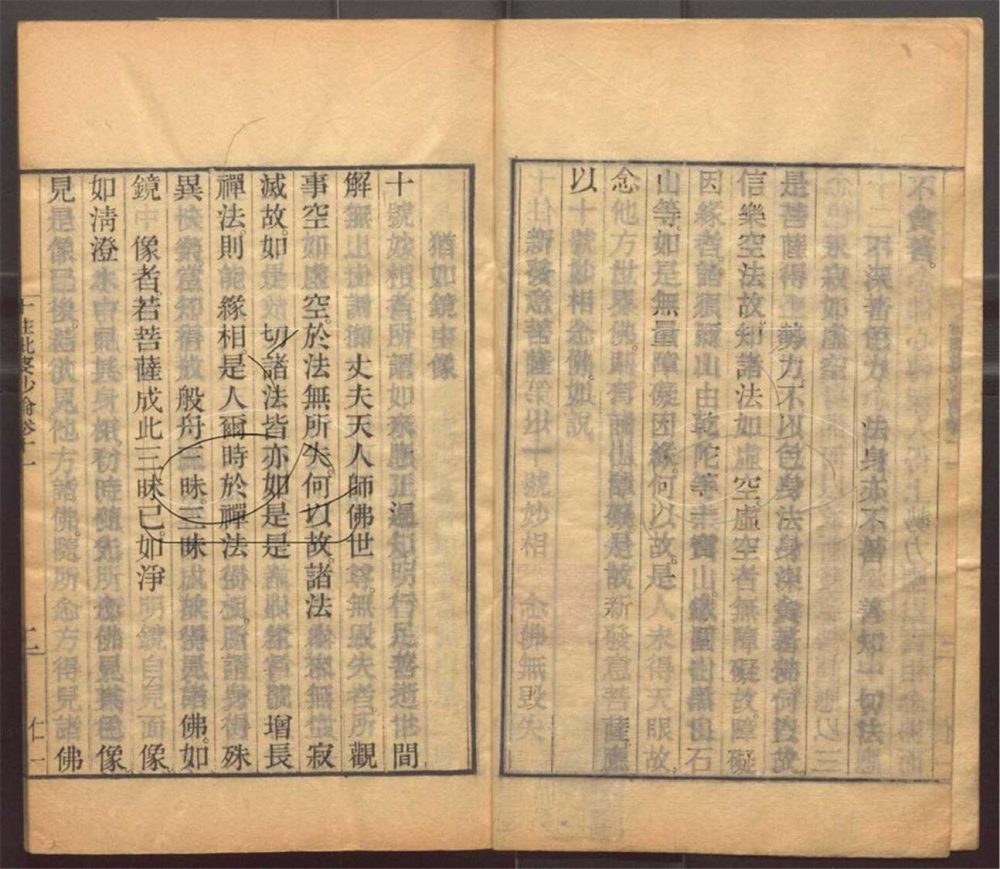 不貪著。
不深著色身 法身亦不著 善知一切法
永寂如虛空
是菩薩得上勢力。不以色身法身深貪著佛何以故
信樂空法故。知諸法如虛空。虛空者無障礙故。障礙
因緣者。諸須彌山由乾陀等十寶山。鐵圍山黑山石
山等。如是無量障礙因緣。何以故。是人未得天眼故。
念他方世界佛。則有諸山障礙。是故新發意菩薩。應
以十號妙相念佛。如說
新發意菩薩 以十號妙相 念佛無毀失
猶如鏡中像
十號妙相者。所謂如來應正遍知明行足善逝世間
解無上士調御丈夫天人師佛世尊。無毀失者。所觀
事空如虛空。於法無所失。何以故。諸法本來無生寂
滅故。如是一切諸法皆亦如是。是人以緣名號增長
禪法。則能緣相。是人爾時於禪法得相。所謂身得殊
異快樂。當知得成般舟三昧。三昧成故得見諸佛。如
鏡中像者。若菩薩成此三昧已。如淨明鏡自見面像。
如清澄水中見其身相。初時隨先所念佛見其色像。
見是像已後。若欲見他方諸佛。隨所念方得見諸佛
十住毗婆沙論卷十二 二 仁一